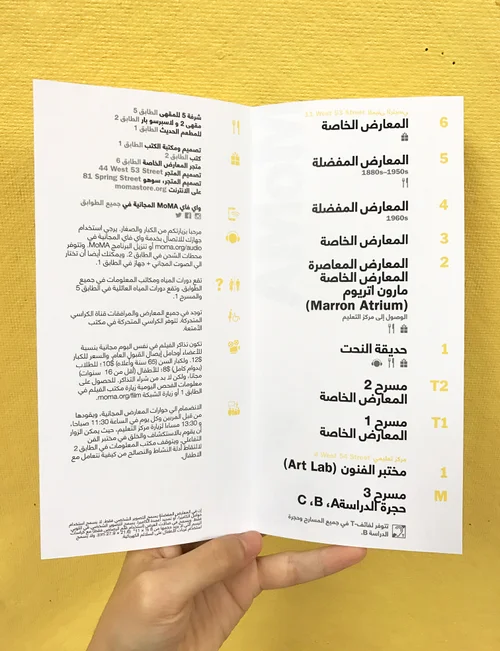 11 West 53 Street
6 المعارض الخاصة
5 المعارض المفضلة
1880s–1950s
4 المعارض المفضلة
1960s
3 المعارض الخاصة
2 المعارض المعاصرة
المعارض الخاصة
مارون اتريوم
(Marron Atrium)
الوصول إلى مركز التعليم
1 حديقة النحت
T2 مسرح 2
المعارض الخاصة
T1 مسرح 1
المعارض الخاصة
مركز تعليمي 4 West 54 Street
1 مختبر الفنون (Art Lab)
M مسرح 3
حجرة الدراسة A، B، C
تتوفر لفائف-T في جميع المسارح وحجرة
الدراسة B.
شرفة 5 للمقهى الطابق 5
مقهى 2 و لاسبرسو بار الطابق 2
للمطعم الحديث الطابق 1
تصميم ومكتبة الكتب الطابق 1
كتب الطابق 2
متجر المعارض الخاصة الطابق 6
تصميم المتجر 44 West 53 Street
تصميم المتجر، سوهو 81 Spring Street
على الانترنت momastore.org
واي فاي MoMA المجانية في جميع الطوابق
مرحبا بزيارتكم من الكبار والصغار. يرجى استخدام
جهازك للاتصال بخدمة واي فاي المجانية في
moma.org/audio أو تنزيل البرنامج MoMA. وتتوفر
محطات الشحن في الطابق 2. ويمكنك أيضا أن تختار
الي الصوت المجاني + جهاز في الطابق 1.
تقع دورات المياه ومكاتب المعلومات في جميع
الطوابق. وتقع دورات المياه العائلية في الطابق 5
والمسرح 1.
توجد في جميع المعارض والمرافقات قناة الكراسي
المتحركة. تتوفر الكراسي المتحركة في مكتب
الأمتعة.
تكون تذاكر الفيلم في نفس اليوم مجانية بنسبة
للأعضاء أوحامل إيصال القبول العام. والسعر للكبار
$12، ولكبار السن (65 سنة وأعلاه) $10؛ للطلاب
(بدوام كامل) $8؛ للأطفال (أقل من 16 سنوات)
مجانا، ولكن لا بد من شراء التذاكر. للحصول على
معلومات الفحص اليومية زيارة مكتب الفيلم في
الطابق 1 أو زيارة الشبكة moma.org/film.
الانضمام إلي حوارات المعارض المجانية، ويقودها
من قبل المربين وكل يوم في الساعة 11:30 صباحا،
و 13:30 مساءا لزيارة مركز التعليم، حيث يمكن الزوار
أن يقوم بالاستكشاف والخلق في مختبر الفن
التفاعلي. ويتوقف مكتب المعلومات في الطابق 2
لالتقاط أدلة النشاط والنصائح من كيفية يتعامل مع
الاطفال.